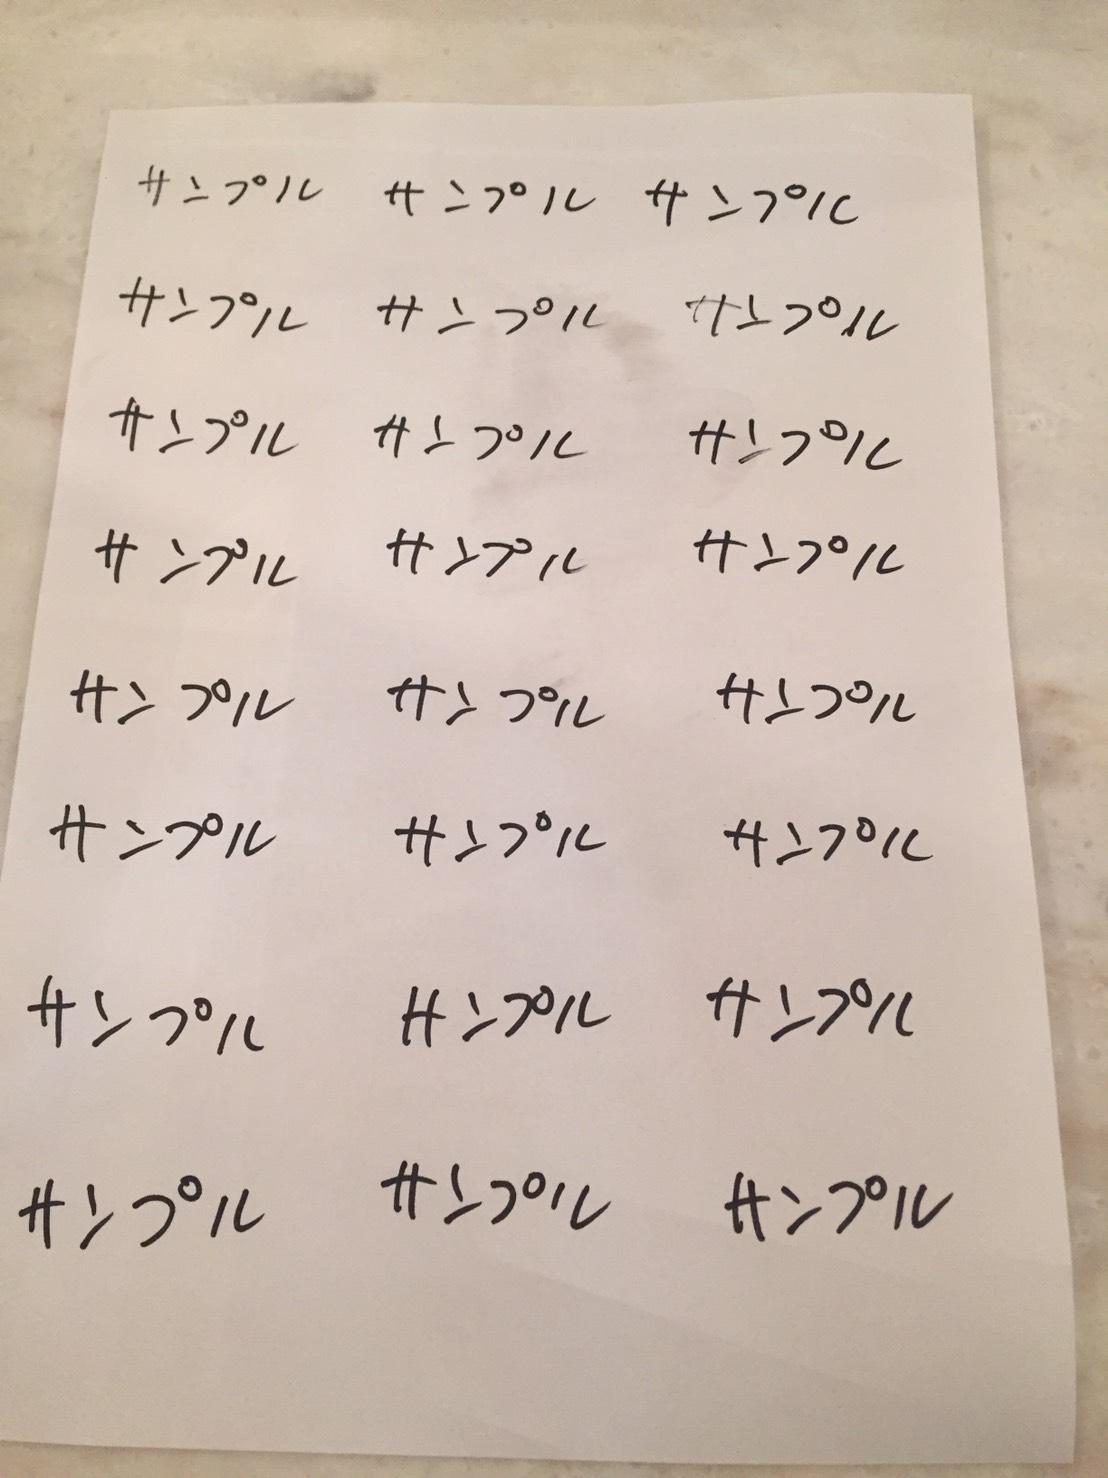 サンプル サンプル サンプル
サンプル サンプル サンプル
サンプル サンプル サンプル
サンプル サンプル サンプル
サンプル サンプル サンプル
サンプル サンプル サンプル
サンプル サンプル サンプル
サンプル サンプル サンプル